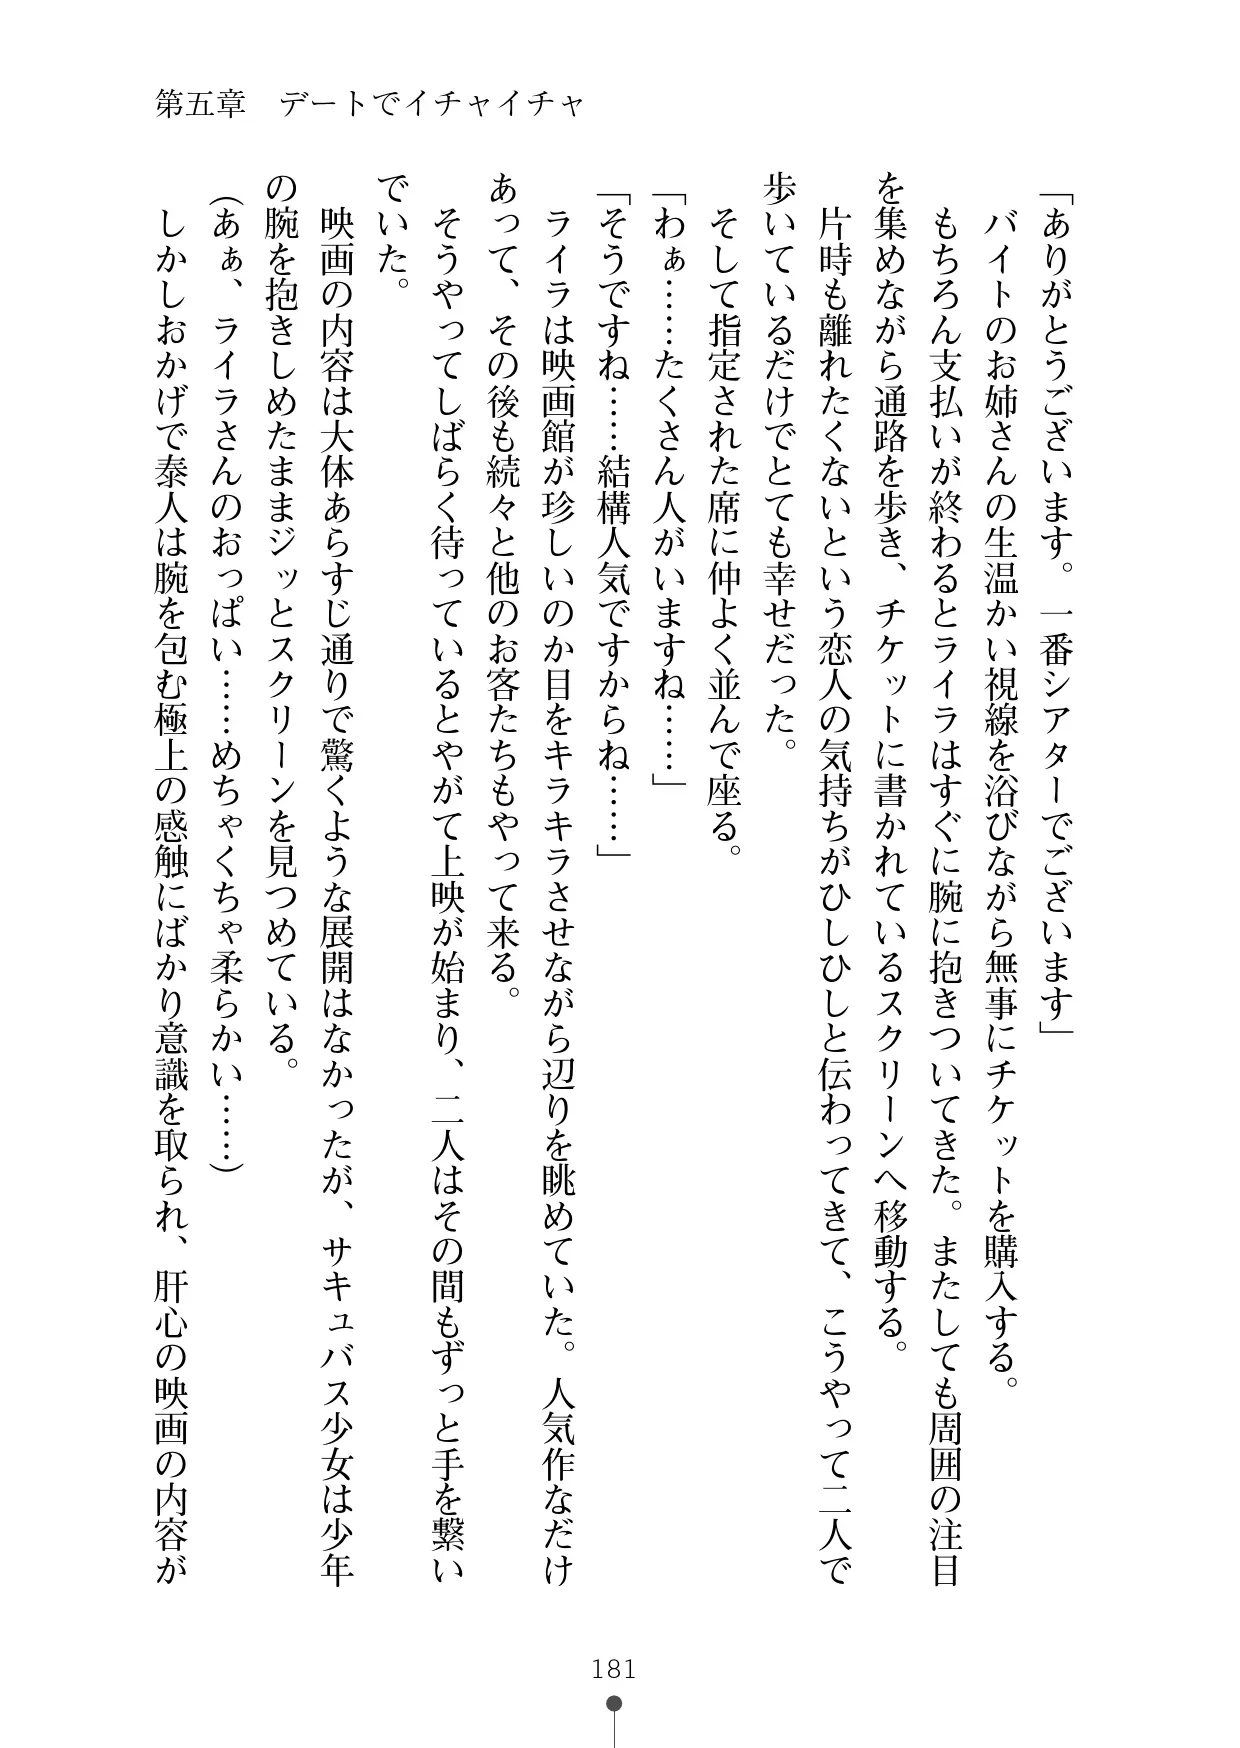 第五章　デートでイチャイチャ
「ありがとうございます。一番シアターでございます」
　バイトのお姉さんの生温かい視線を浴びながら無事にチケットを購入する。
　もちろん支払いが終わるとライラはすぐに腕に抱きついてきた。またしても周囲の注目
を集めながら通路を歩き、チケットに書かれているスクリーンへ移動する。
　片時も離れたくないという恋人の気持ちがひしひしと伝わってきて、こうやって二人で
歩いているだけでとても幸せだった。
　そして指定された席に仲よく並んで座る。
「わぁ……たくさん人がいますね……」
「そうですね……結構人気ですからね……」
　ライラは映画館が珍しいのか目をキラキラさせながら辺りを眺めていた。人気作なだけ
あって、その後も続々と他のお客たちもやって来る。
　そうやってしばらく待っているとやがて上映が始まり、二人はその間もずっと手を繋い
でいた。
　映画の内容は大体あらすじ通りで驚くような展開はなかったが、サキュバス少女は少年
の腕を抱きしめたままジッとスクリーンを見つめている。
（あぁ、ライラさんのおっぱい……めちゃくちゃ柔らかい……）
　しかしおかげで泰人は腕を包む極上の感触にばかり意識を取られ、肝心の映画の内容が
181